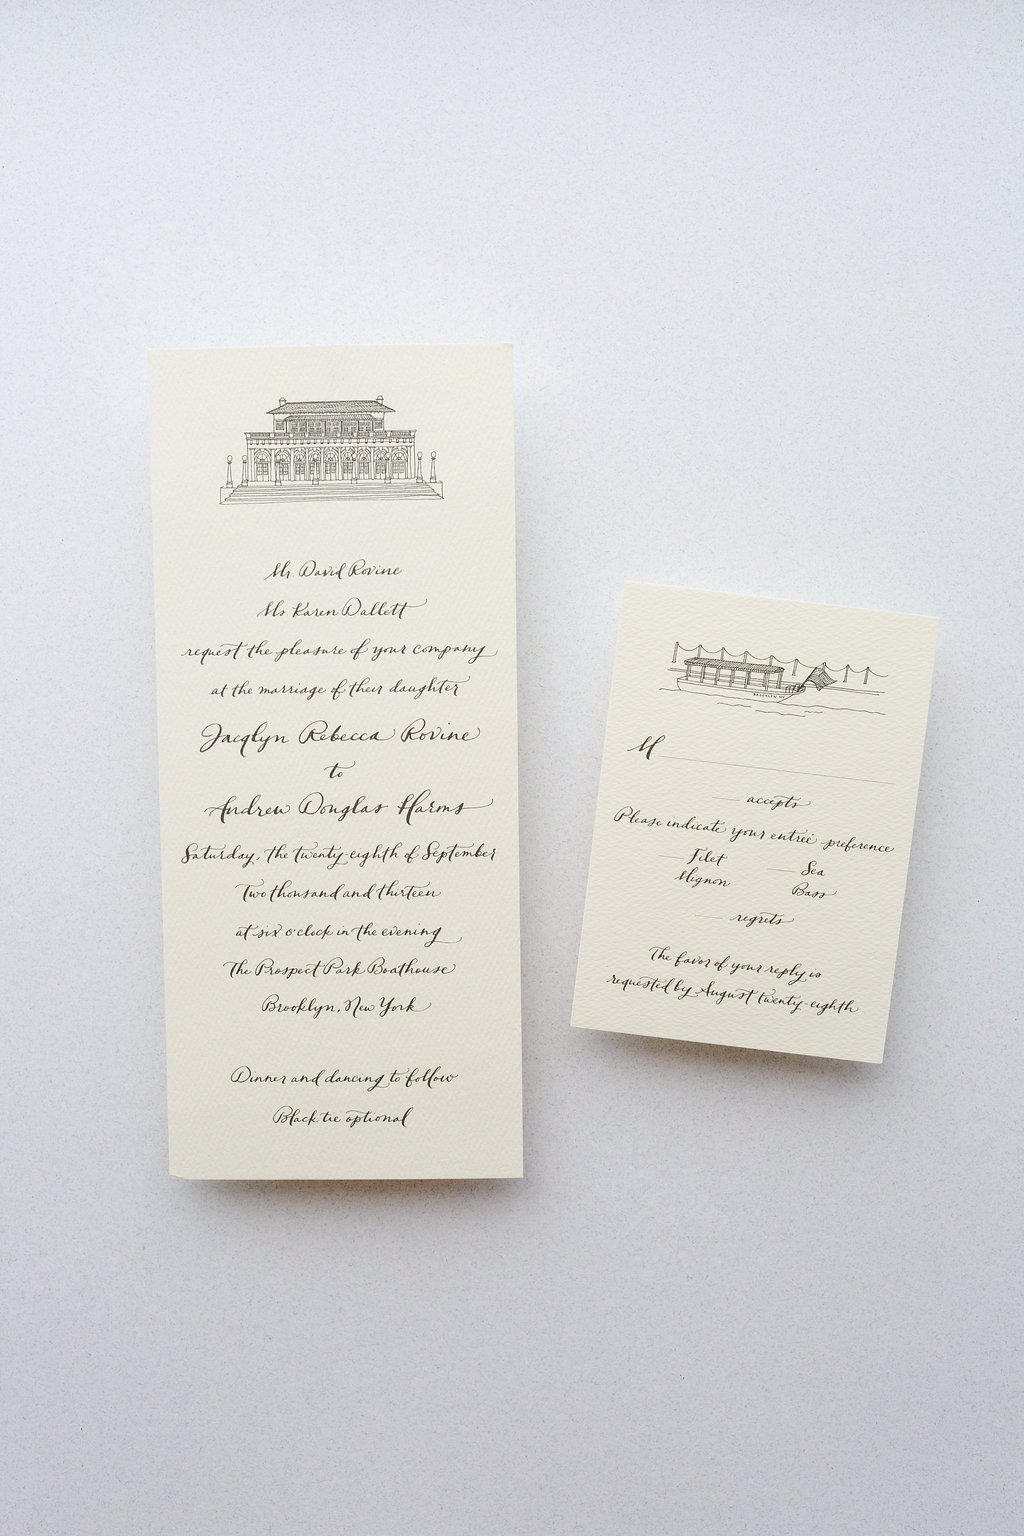 Mr. David Rovine
Ms. Karen Dallett
request the pleasure of your company
at the marriage of their daughter
Jacqlyn Rebecca Rovine
to
Andrew Douglas Harms
Saturday, the twenty-eighth of September
Two thousand and thirteen
at six o'clock in the evening
The Prospect Park Boathouse
Brooklyn, New York
Dinner and dancing to follow
Black tie optional
BROOKLYN NY
M
accepts
Please indicate your entrée preference
Filet Mignon
Sea Bass
regrets
The favor of your reply is
requested by August twenty-eighth